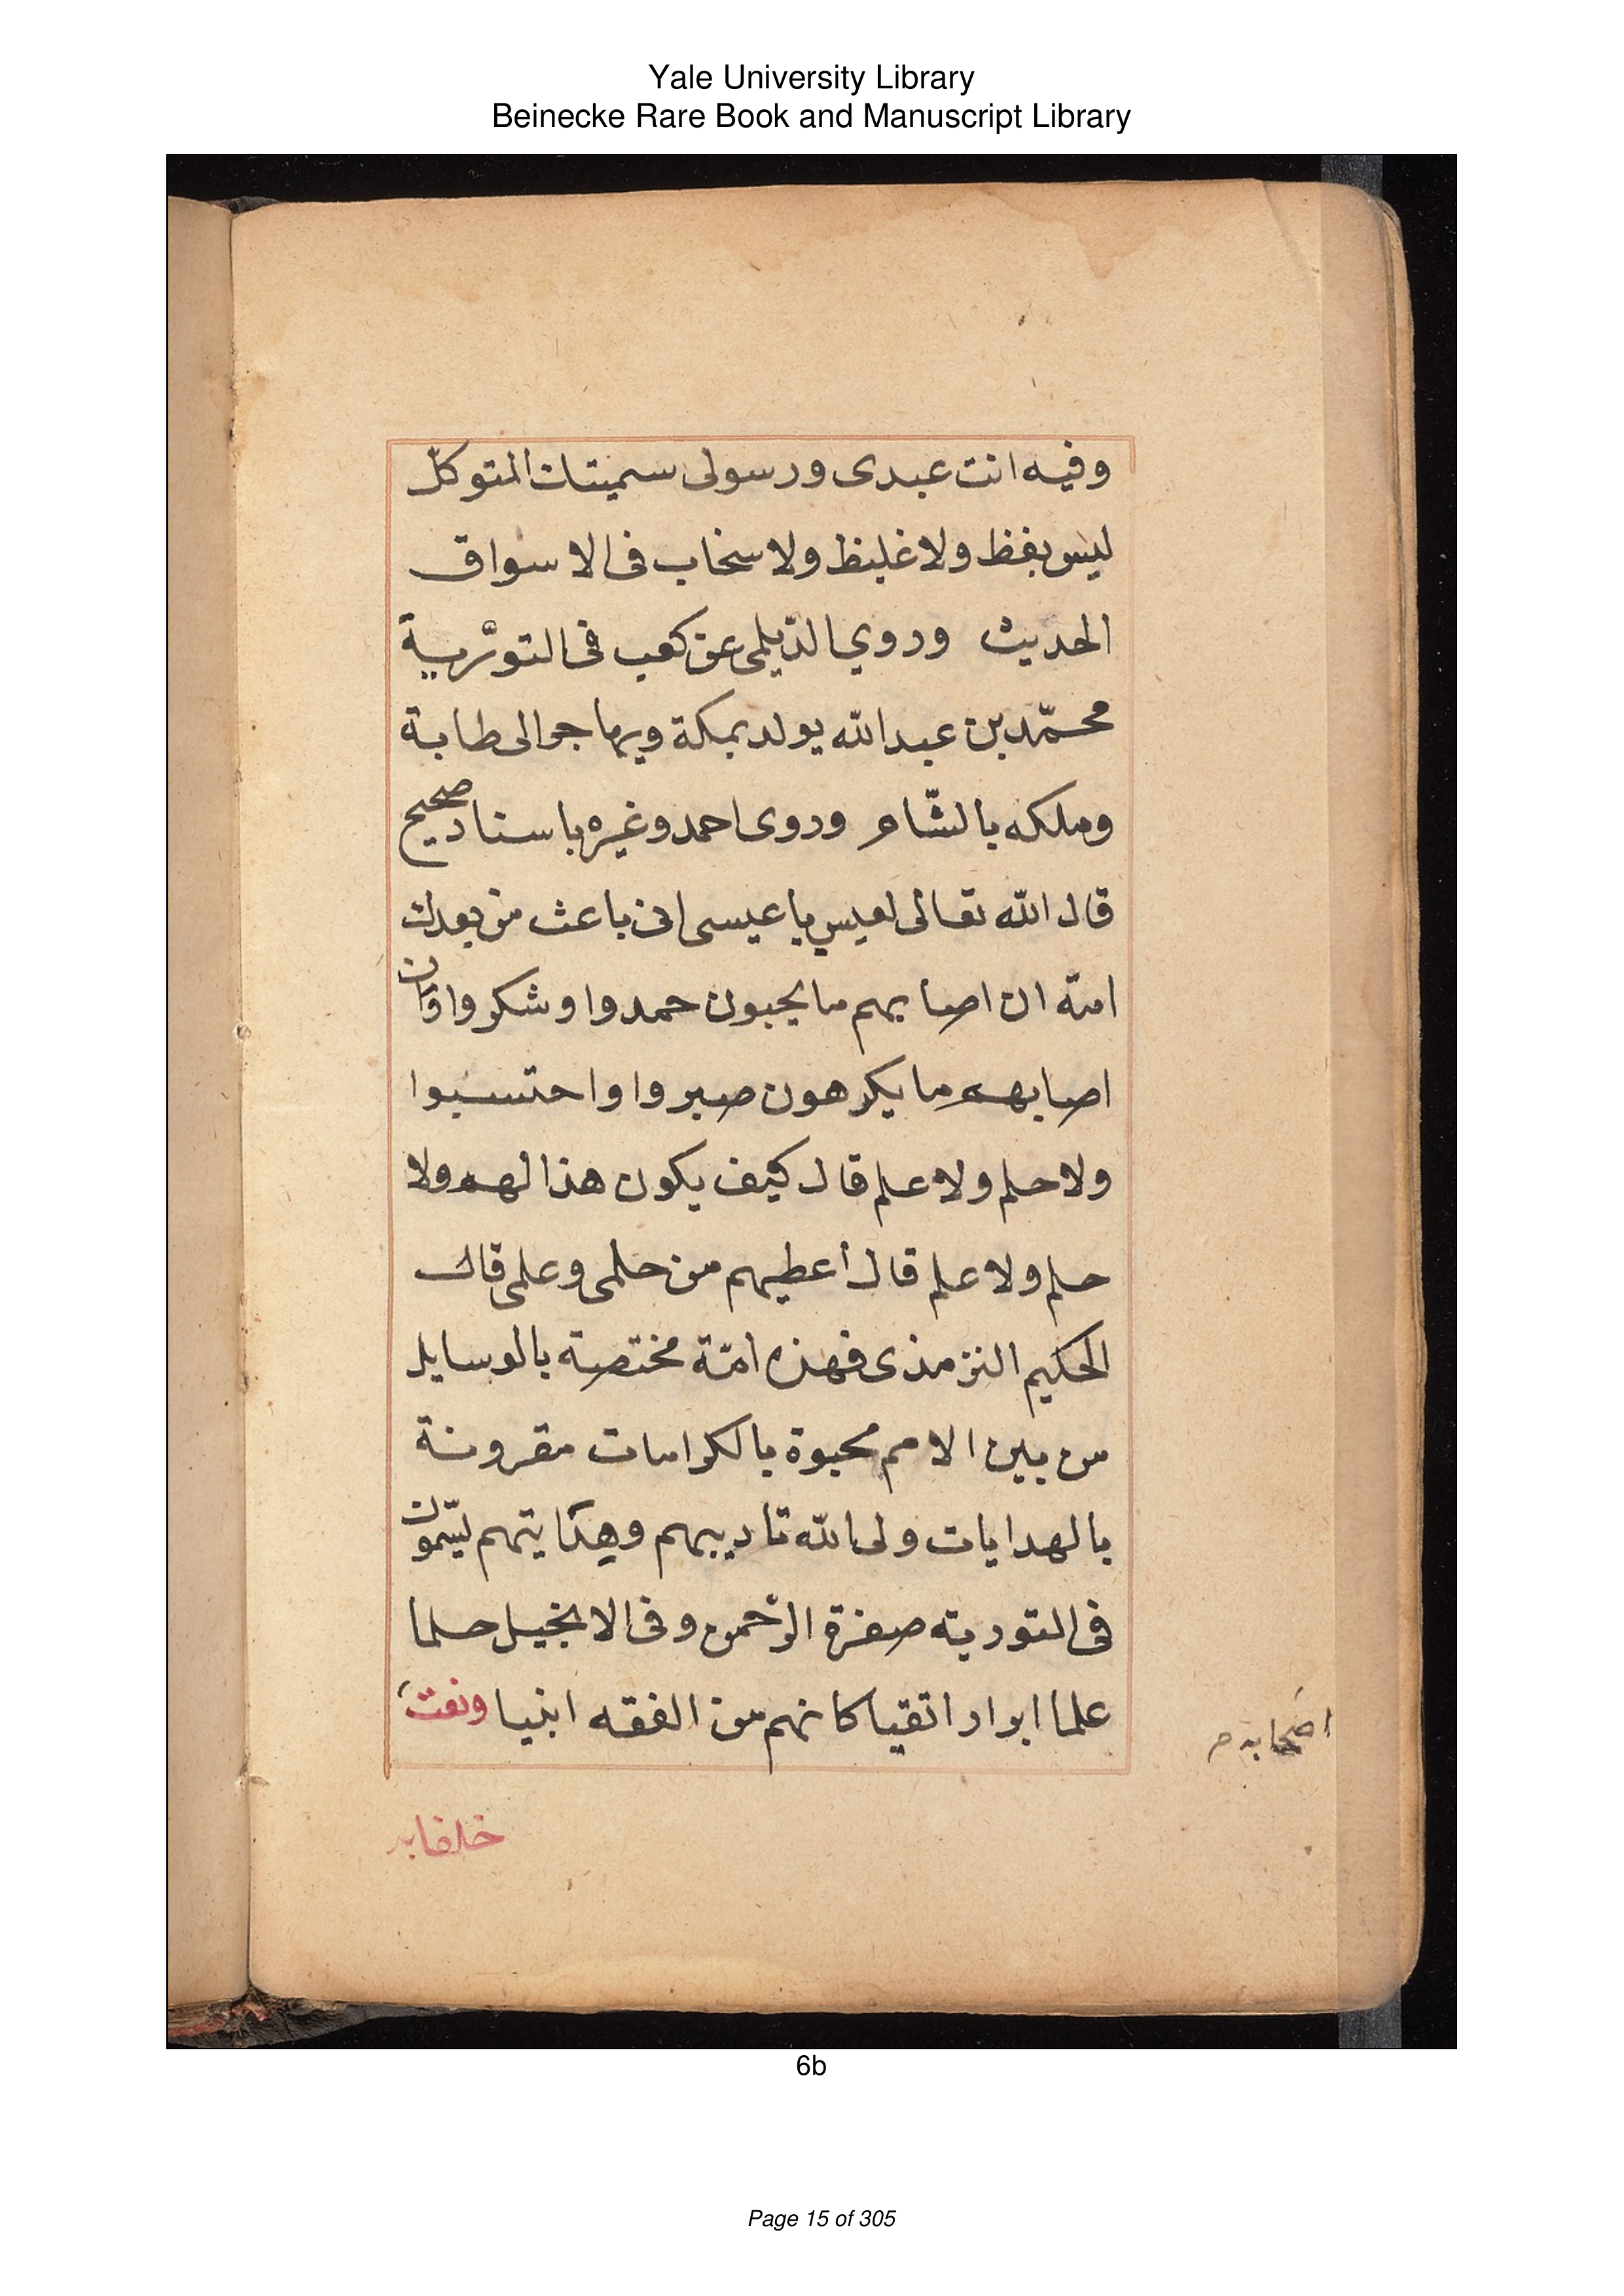 Yale University Library
Beinecke Rare Book and Manuscript Library
وفيه انت عبدى ورسولى سميتك المتوكل
ليس بفظ ولا غليظ ولا سخاب فى الاسواق
الحديث وروي الديلمى عن كعب فى التورية
محمّد بن عبد الله يولد بمكة ويهاجر الى طابة
وملكه بالشّام وروى احمد وغيره باسناد صحيح
قال الله تعالى لعيسي يا عيسى انى باعث من بعدك
امّة ان اصابهم ما يحبون حمدوا وشكروا وان
اصابهم ما يكرهون صبروا واحتسبوا
ولا حلم ولا علم قال كيف يكون هذا لهم ولا
حلم ولا علم قال أعطيهم من حلمى وعلمى قال
الحكيم الترمذى فهذه امّة مختصة بالوسايل
من بين الامم محبوة بالكرامات مقرونة
بالهدايات ولى الله تاديبهم وهدايتهم يسّمون
فى التورية صفرة الرّحمن وفى الانجيل حلما
علما ابرار اتقيا كانهم من الفقه انبيا ونعت
اصحابه م
خلفايه
6b
Page 15 of 305